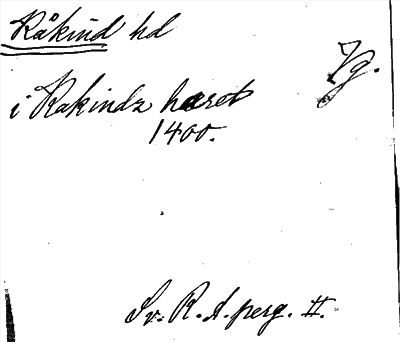 Råkind hd
Ög.
i Rakindz hæret
1400.
Sv. R. A. perg. II.